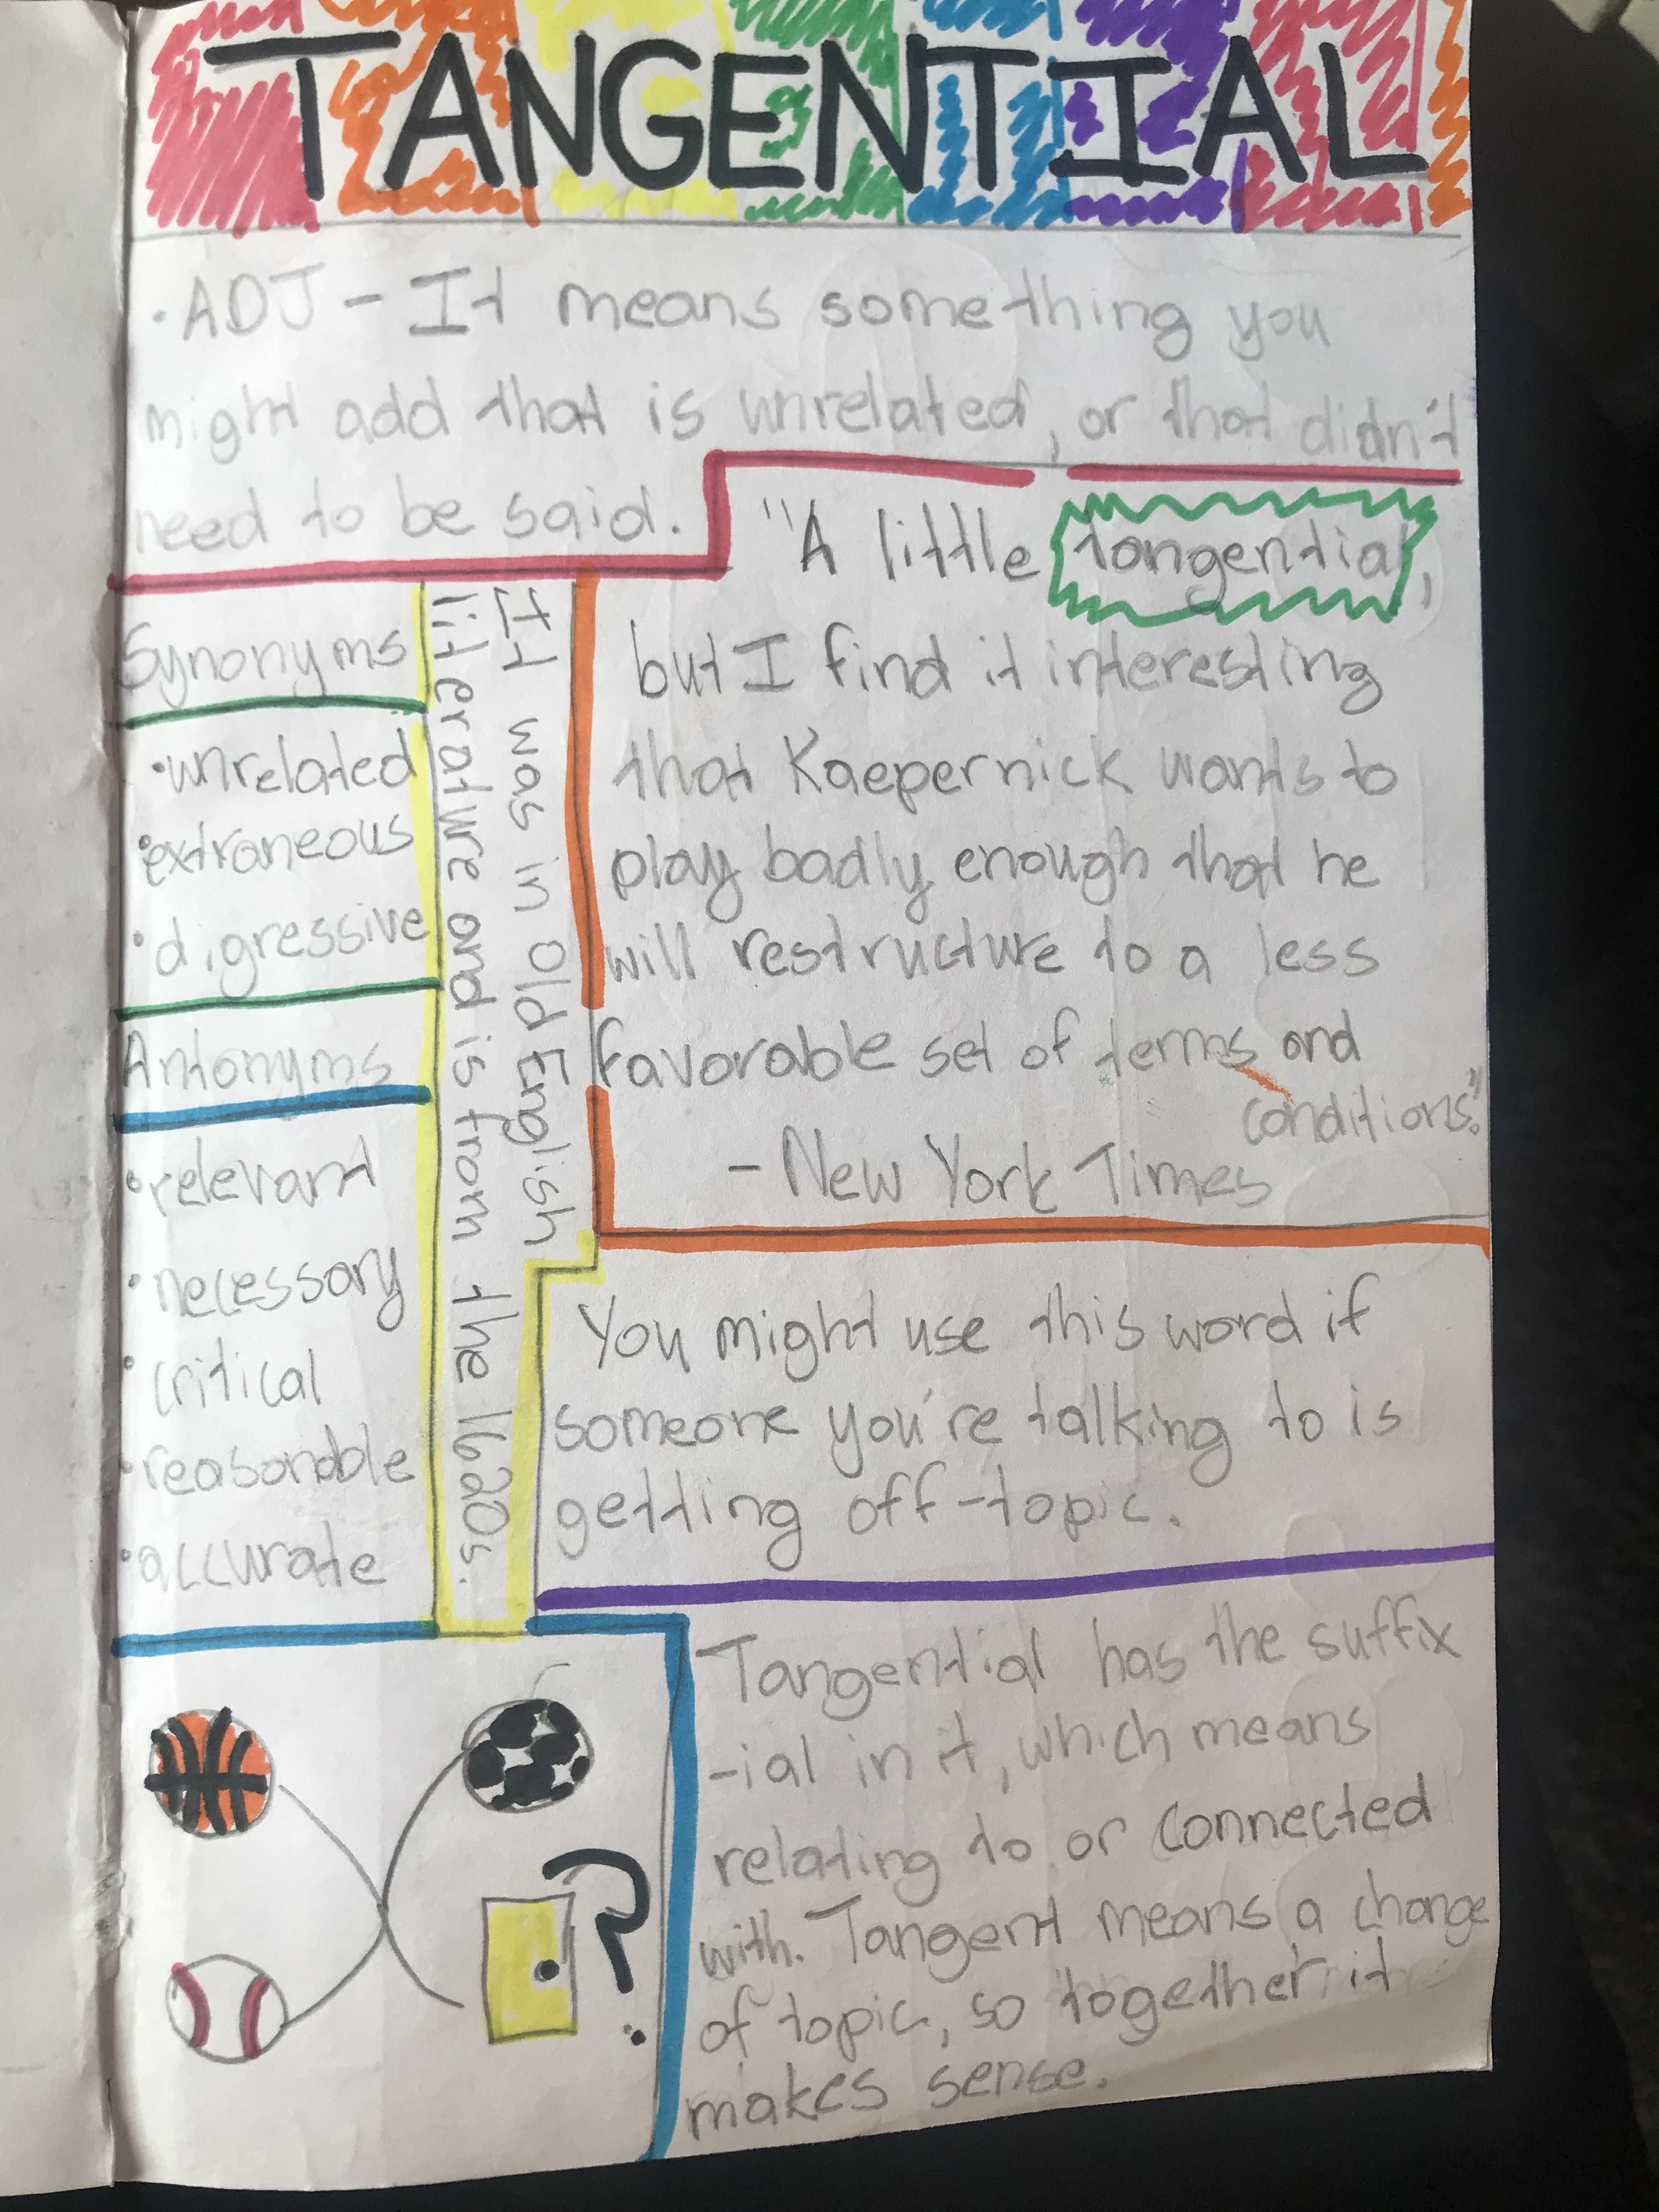 TANGENTIAL
• ADJ - It means something you
might add that is unrelated, or that didn't
need to be said.
"A little tangential,
but I find it interesting
that Kaepernick wants to
play badly enough that he
will restructure to a less
favorable set of terms and
conditions."
- New York Times
Synonyms
• unrelated
• extraneous
• digressive
Antonyms
• relevant
• necessary
• critical
• reasonable
• accurate
It was in Old English
literature and is from the 1620s.
You might use this word if
someone you're talking to is
getting off-topic.
Tangential has the suffix
-ial in it, which means
relating to or connected
with. Tangent means a change
of topic, so together it
makes sense.
?